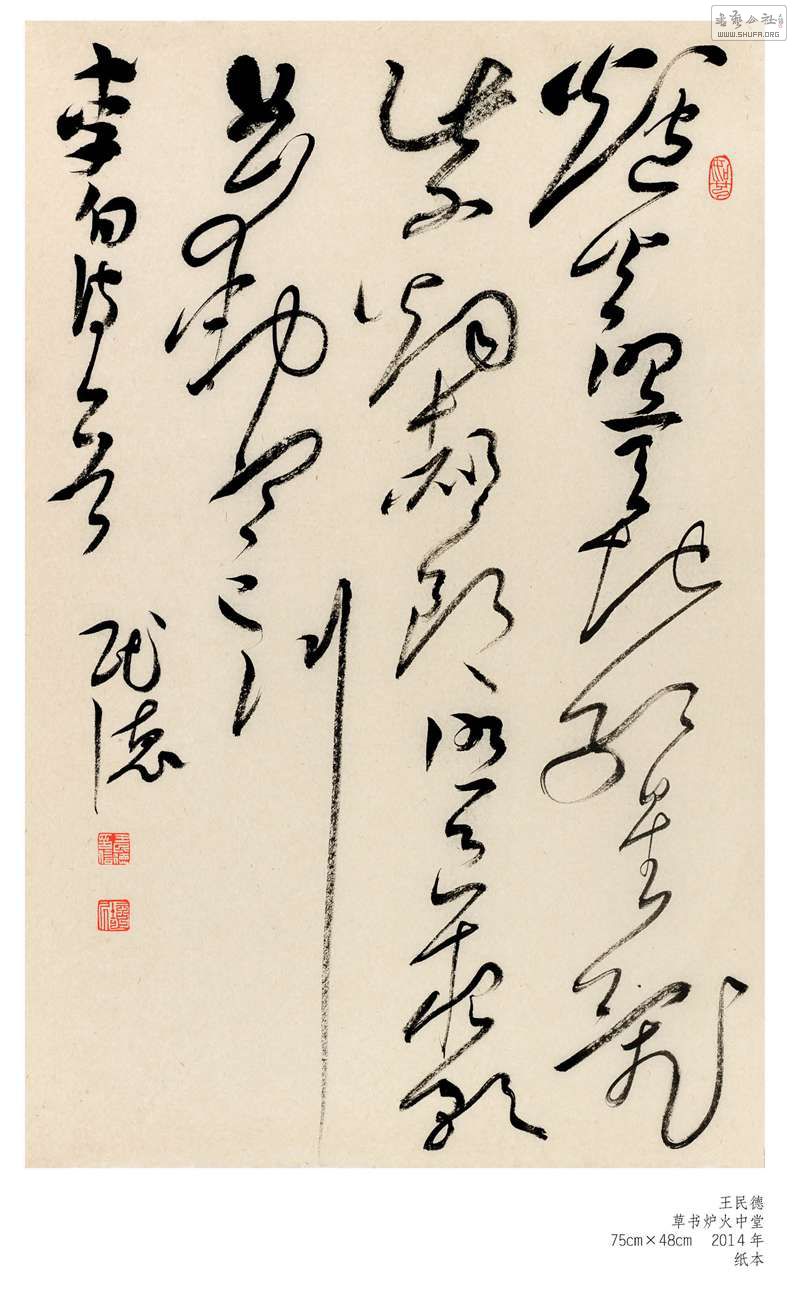 書藝公社
WWW.SHUFA.ORG
爐火照天地紅星亂
紫烟赧郎明月夜歌
曲動寒川
李白詩一首 民德
王民德
草书炉火中堂
75cm×48cm 2014 年
纸本